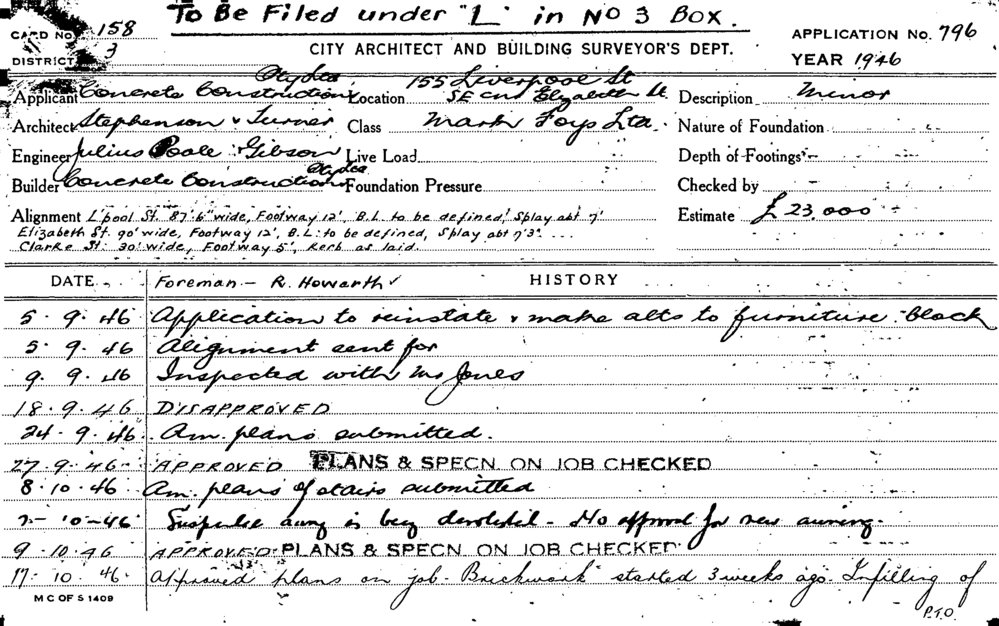 To Be Filed under "L" in No 3 Box.
CARD No. 158
DISTRICT 3
CITY ARCHITECT AND BUILDING SURVEYOR'S DEPT.
APPLICATION No. 796
YEAR 1946
Applicant Concrete Constructions Pty Ltd Location 155 Liverpool St SE cnr Elizabeth St. Description Minor
Architect Stephenson & Turner Class Mark Foys Ltd. Nature of Foundation
Engineer Julius Poole & Gibson Live Load Depth of Footings
Builder Concrete Constructions Foundation Pressure Checked by
Alignment L'pool St. 87'6" wide, Footway 12', B.L. to be defined, Splay abt 7' Estimate £23,000
Elizabeth St. 90' wide, Footway 12', B.L. to be defined, Splay abt 7'3"
Clarke St. 30' wide, Footway 5', Kerb as laid.
DATE Foreman - R. Howarth HISTORY
5.9.46 Application to reinstate & make alts to furniture block
5.9.46 Alignment sent for
9.9.46 Inspected with Mr Jones
18.9.46 DISAPPROVED
24.9.46 Am. plans submitted.
27.9.46 APPROVED PLANS & SPECN. ON JOB CHECKED
8.10.46 Am. plans of stairs submitted
10-46 awng is being - No approval for new awning.
9.10.46 APPROVED PLANS & SPECN. ON JOB CHECKED
17.10.46 Approved plans on job. Brickwork started 3 weeks ago. Infilling of
M C OF S 1409
P.T.O.